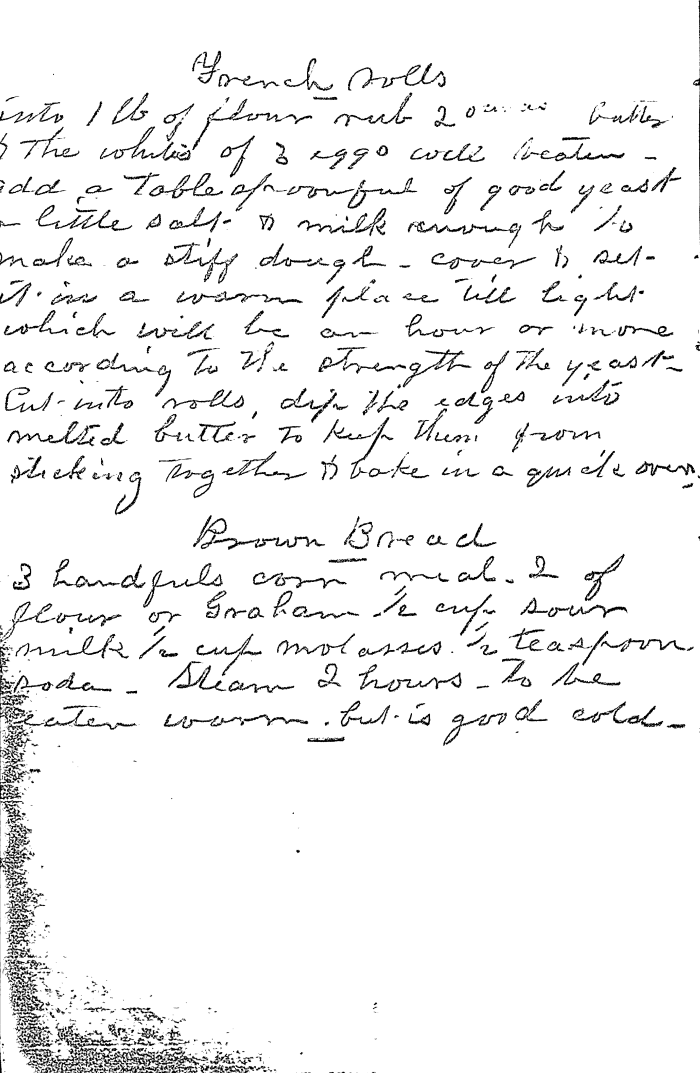 French rolls
into 1 lb of flour rub 2 ounces butter
& the whites of 3 eggs well beaten -
add a Tablespoonful of good yeast
a little salt & milk enough to
make a stiff dough - cover & set
it in a warm place till light
which will be an hour or more
according to the strength of the yeast -
Cut into rolls, dip the edges into
melted butter to keep them from
sticking together & bake in a quick oven
Brown Bread
3 handfuls corn meal - 2 of
flour or Graham 1/2 cup sour
milk 1/2 cup molasses. 1/2 teaspoon
soda - Steam 2 hours - to be
eaten warm. but is good cold -